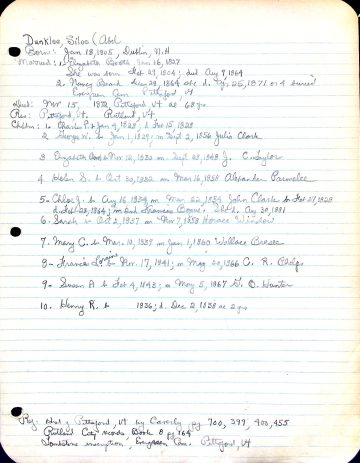 Dunklee, Silas (Abel
Born: Jan 18, 1805, Dublin, N.H
Married: 1. Elizabeth Booth Jan 16, 1827
She was born Feb 29, 1804; died Aug 9, 1864
2. Nancy Beard Dec 29, 1864 she d. 25, 1871 or 4 buried
Evergreen Cem Pittsford Vt
Died: Mar 15, 1872 Pittsford Vt ae 68 yrs
Res: Pittsford, Vt. Rutland, Vt.
Children: 1. Charles P. b Jan 4, 1828; d Feb 15, 1828
2. George W. b Jan 1, 1829; m Sept 2, 1856 Julia Clark
3 Elizabeth b Mar 12, 1830 m Sept 23, 1848 J. C. Taylor
4 Helen S. b Oct 30, 1832 m Mar 16, 1858 Alexander Parmelee
5- Chloe J. b Aug 16, 1834 m Mar 22, 1854 John Clark b Feb 27, 1828
d Feb 28, 1864; m 2nd 30, 1881
6. Sarah b Oct 2, 1837 m Nov 7, 1858 Horace Winslow
7. Mary C. b Mar. 10, 1839 m Jan 1, 1860 Wallace
8- Francis b Nov. 17, 1841; m May 30, 1866 C. R.
9- Susan A b Feb 4, 1843; m May 5, 1867 G. O Hunter
10. Henry R. b 1836; d. Dec 2, 1838 ae 2 yrs
Ref: Hist of Pittsford, Vt by Caverly pg 700, 399, 400, 455
Rutland City records Book 8 pg 164
Tombstone inscription, Evergreen Cem. Pittsford, Vt